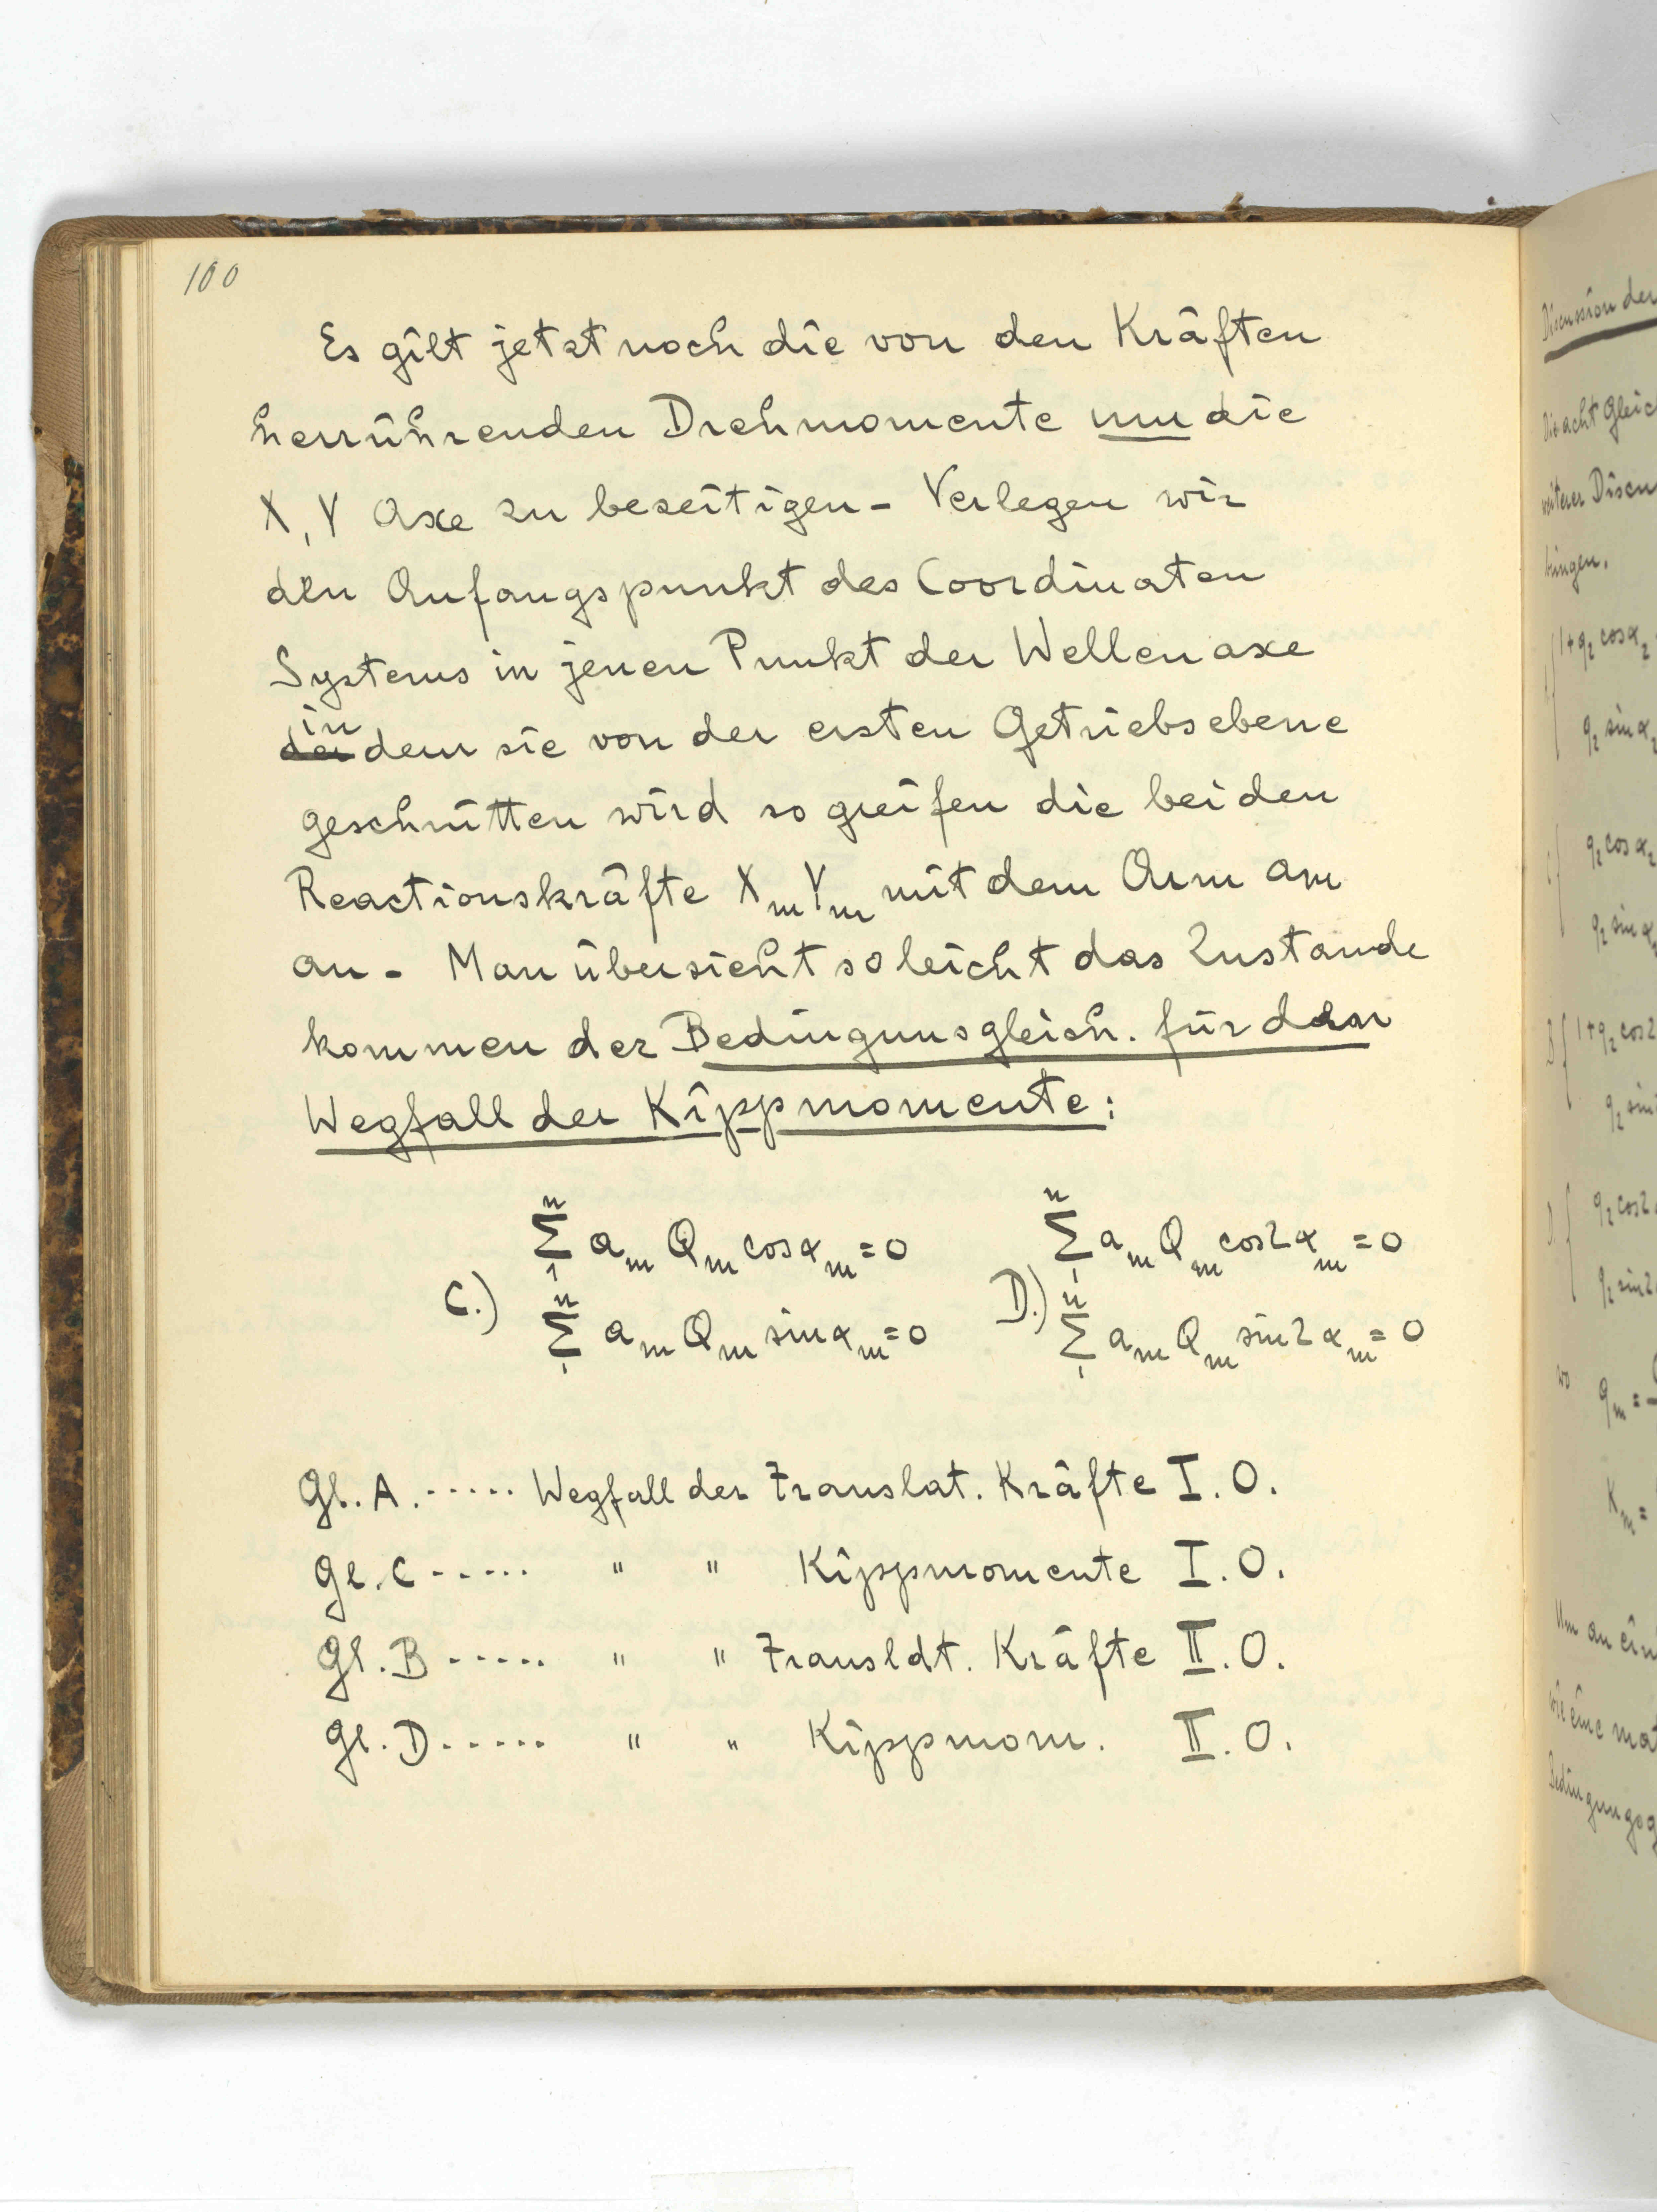 100
Es gilt jetzt noch die von den Kräften
herrührenden Drehmomente um die
X, Y Axe zu beseitigen - Verlegen wir
den Anfangspunkt des Coordinaten
Systems in jenen Punkt der Wellenaxe
in
der dem sie von der ersten Getriebsebene
geschnitten wird so greifen die beiden
Reactionskräfte Xₘ Yₘ mit dem Arm aₘ
an - Man übersieht so leicht das Zustande
kommen der Bedingunsgleich. für den
Wegfall der Kippmomente:
C.) Σ₁ⁿ aₘ Qₘ cosαₘ = 0
Σ₁ⁿ aₘ Qₘ sinαₘ = 0
D.) Σ₁ⁿ aₘ Qₘ cos2αₘ = 0
Σ₁ⁿ aₘ Qₘ sin2αₘ = 0
Gl. A ...... Wegfall der Translat. Kräfte I. O.
Gl. C ...... " " Kippmomente I. O.
Gl. B ...... " " Translat. Kräfte II. O.
Gl. D ...... " " Kippmom. II. O.
Discussion der
Die acht Gleic
weiterer Discu
bringen.
1+q₂ cosα₂
q₂ sinα₂
C q₂ cosα₂
q₂ sinα
B 1+q₂ cos2
q₂ sin
D. q₂ cos2
q₂ sin2
wo
qₘ =
Kₘ =
Um an ein
wie eine mat
Bedingungsg